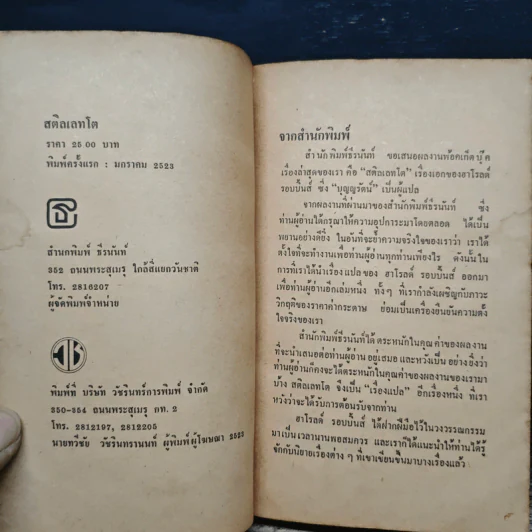 สติลเลทโต
ราคา 25.00 บาท
พิมพ์ครั้งแรก : มกราคม 2523
สำนักพิมพ์ ธีรนันท์
352 ถนนพระสุเมรุ ใกล้สี่แยกวันชาติ
โทร. 2816207
ผู้จัดพิมพ์จำหน่าย
พิมพ์ที่ บริษัท วัชรินทร์การพิมพ์ จำกัด
350-354 ถนนพระสุเมรุ กท. 2
โทร. 2812197, 2812205
นายทวีชัย วัชรินทรานนท์ ผู้พิมพ์ผู้โฆษณา 2523
จากสำนักพิมพ์
สำนักพิมพ์ธีรนันท์ ขอเสนอผลงานพ้อคเก็ตบุ๊ค
เรื่องล่าสุดของเรา คือ “สติลเลทโต” เรื่องเอกของฮาโรลด์
รอบบิ้นส์ ซึ่ง “บุญญรัตน์” เป็นผู้แปล
จากผลงานที่ผ่านมาของสำนักพิมพ์ธีรนันท์ ซึ่ง
ท่านผู้อ่านได้กรุณาให้ความอุปการะมาโดยตลอด ได้เป็น
พยานอย่างดียิ่ง ในอันที่จะย้ำความจริงใจของเราว่า เราได้
ตั้งใจที่จะทำงานเพื่อท่านผู้อ่านทุกท่านเพียงไร ดังนั้นใน
การที่เราได้นำเรื่องแปลของ ฮาโรลด์ รอบบิ้นส์ ออกมา
เพื่อท่านผู้อ่านอีกเล่มหนึ่ง ทั้งๆ ที่เรากำลังเผชิญกับภาวะ
วิกฤติของราคาค่ากระดาษ ย่อมเป็นเครื่องยืนยันความตั้ง
ใจจริงของเรา
สำนักพิมพ์ธีรนันท์ได้ตระหนักในคุณค่าของผลงาน
ที่จะนำเสนอต่อท่านผู้อ่านอยู่เสมอ และหวังเป็นอย่างยิ่งว่า
ท่านผู้อ่านก็คงจะได้ตระหนักในคุณค่าของผลงานของเรามา
บ้าง สติลเลทโต จึงเป็น “เรื่องแปล” อีกเรื่องหนึ่ง ที่เรา
หวังว่าจะได้รับการต้อนรับจากท่าน
ฮาโรลด์ รอบบิ้นส์ ได้ฝากฝีมือไว้ในวงวรรณกรรม
มาเป็นเวลานานพอสมควร และเราก็ได้แนะนำให้ท่านได้รู้
จักกับนิยายเรื่องต่าง ๆ ที่เขาเขียนขึ้นมาบางเรื่องแล้ว